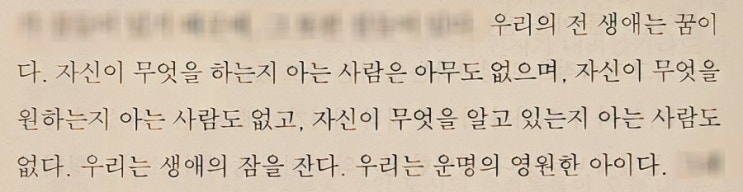 우리의 전 생애는 꿈이
다. 자신이 무엇을 하는지 아는 사람은 아무도 없으며, 자신이 무엇을
원하는지 아는 사람도 없고, 자신이 무엇을 알고 있는지 아는 사람도
없다. 우리는 생애의 잠을 잔다. 우리는 운명의 영원한 아이다.